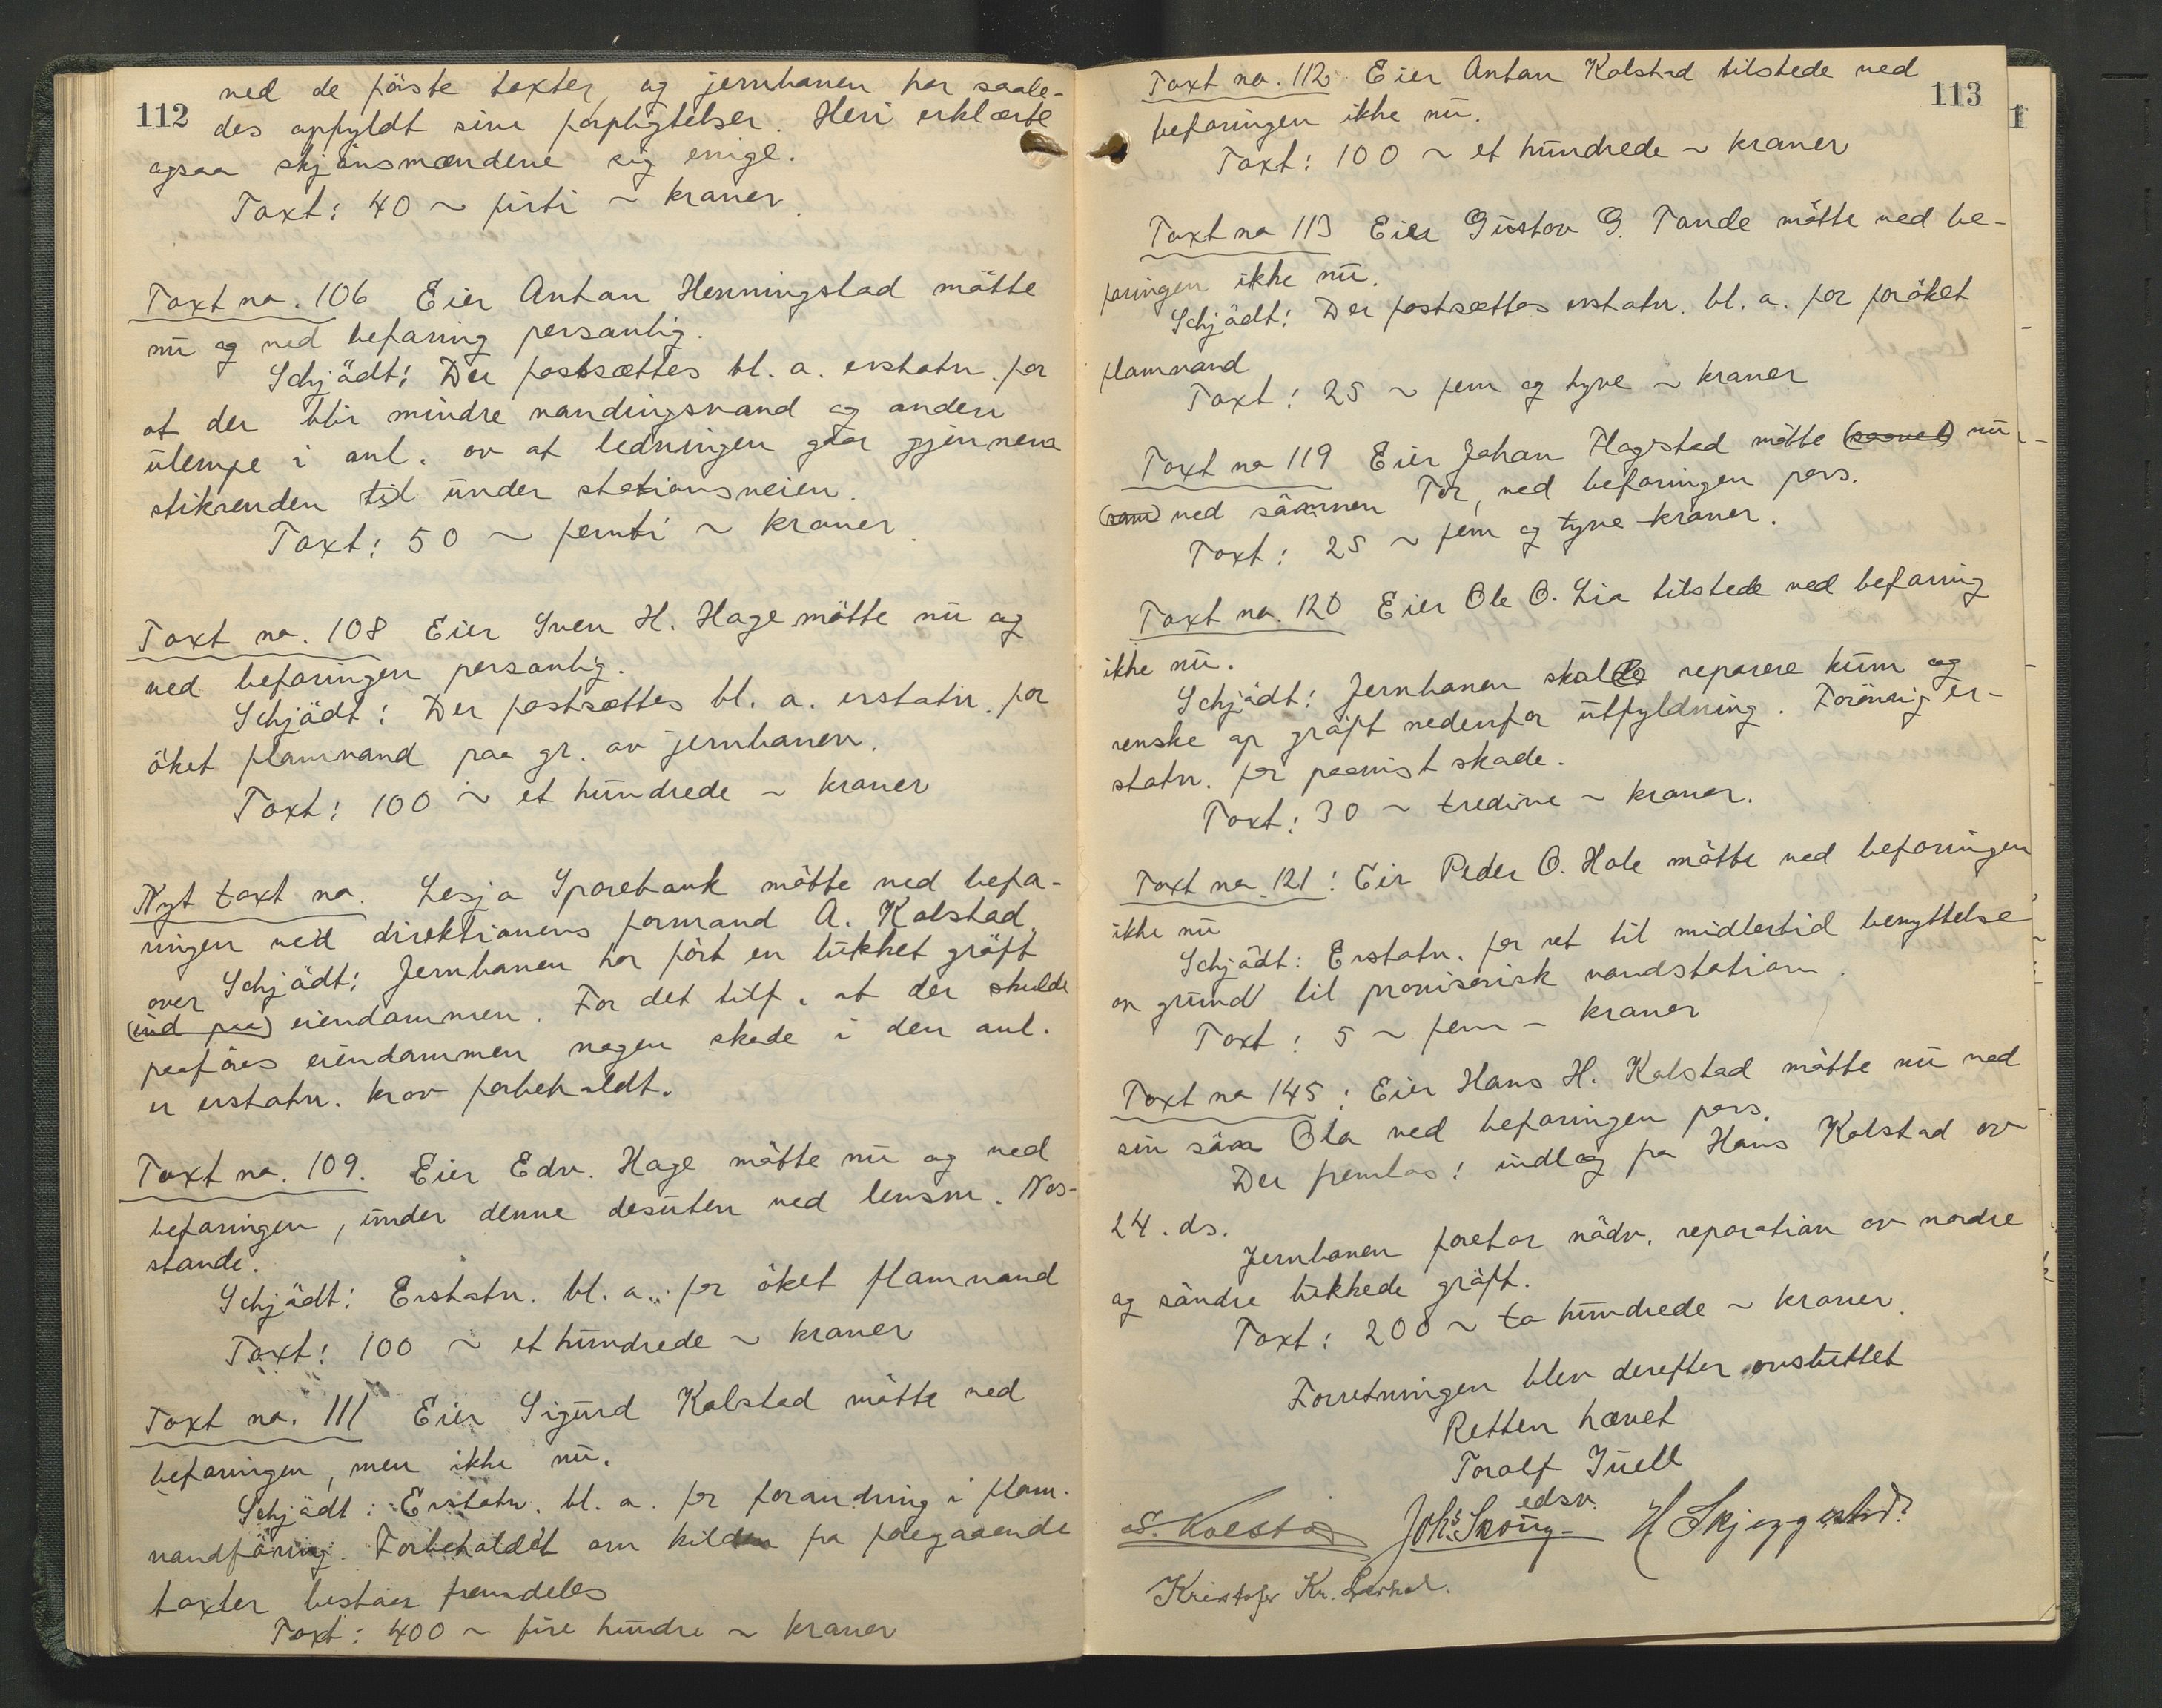 112
ved de förste taxter, og jernbanen har saale-
des opfyldt sine forpligtelser. Heri erklærte
ogsaa skjönsmændene sig enige.
Taxt: 40 ~ firti ~ kroner.
Taxt no. 106 Eier Anton Henningstad mötte
nu og ved befaring personlig.
Schjödt: Der fastsættes bl. a. erstatn. for
at der blir mindre vandingsvand og anden
ulempe i anl. av at ledningen gaar gjennem
stikrenden til under stationsveien.
Taxt: 50 ~ femti ~ kroner.
Taxt no. 108 Eier Sven H. Hage mötte nu og
ved befaringen personlig.
Schjödt: Der fastsættes bl. a. erstatn. for
öket flomvand paa gr. av jernbanen.
Taxt: 100 ~ et hundrede ~ kroner
Nyt taxt no. Lesja Sparebank mötte ved befa-
ringen ved direktionens formand A. Kolstad.
Schjödt: Jernbanen har fört en lukket gröft
over
(ind paa) eiendommen. For det tilf. at der skulde
paaföres eiendommen nogen skade i den anl.
er erstatn. krav forbeholdt.
Taxt no. 109. Eier Edv. Hage mötte nu og ved
befaringen, under denne desuten ved lensm. Nos-
stande.
Schjödt: Erstatn. bl. a. for öket flomvand
Taxt: 100 ~ et hundrede ~ kroner
Taxt no. 111 Eier Sigurd Kolstad mötte ved
befaringen, men ikke nu.
Schjödt: Erstatn. bl. a. for forandring i flom-
vandföring. Forbeholdet om kilden fra foregaaende
taxter bestaar fremdeles
Taxt: 400 ~ fire hundre ~ kroner
113
Taxt no. 112. Eier Anton Kolstad tilstede ved
befaringen ikke nu.
Taxt: 100 ~ et hundrede ~ kroner
Taxt no 113 Eier Gustav G. Tande mötte ved be-
faringen ikke nu.
Schjödt: Der fastsættes erstatn. bl. a. for foröket
flomvand
Taxt: 25 ~ fem og tyve ~ kroner
Taxt no 119 Eier Johan Flagstad mötte (saavel) nu
(som) ved sönnen Tor, ved befaringen pers.
Taxt: 25 ~ fem og tyve kroner.
Taxt no. 120 Eier Ole O. Lia tilstede ved befaring
ikke nu.
Schjödt: Jernbanen skal reparere kum og
renske op gröft nedenfor utfyldning. Forövrig er-
statn. for paavist skade.
Taxt: 30 ~ tredive ~ kroner.
Taxt no. 121: Eir Peder O. Hole mötte ved befaringen
ikke nu
Schjödt: Erstatn. for ret til midlertid benyttelse
av grund til provisorisk vandstation.
Taxt: 5 ~ fem ~ kroner
Taxt no 145: Eier Hans H. Kolstad mötte nu ved
sin sön Ola ved befaringen pers.
Der fremlas: indlæg fra Hans Kolstad av
24. ds.
Jernbanen foretar nödv. reparation av nordre
og söndre lukkede gröft.
Taxt: 200 ~ to hundrede ~ kroner.
Forretningen blev derefter avsluttet
Retten hævet
Toralf Juell
edsv.
S. Kolstad Johs. Skoug H Skjeggestad
Kristofer Kr.